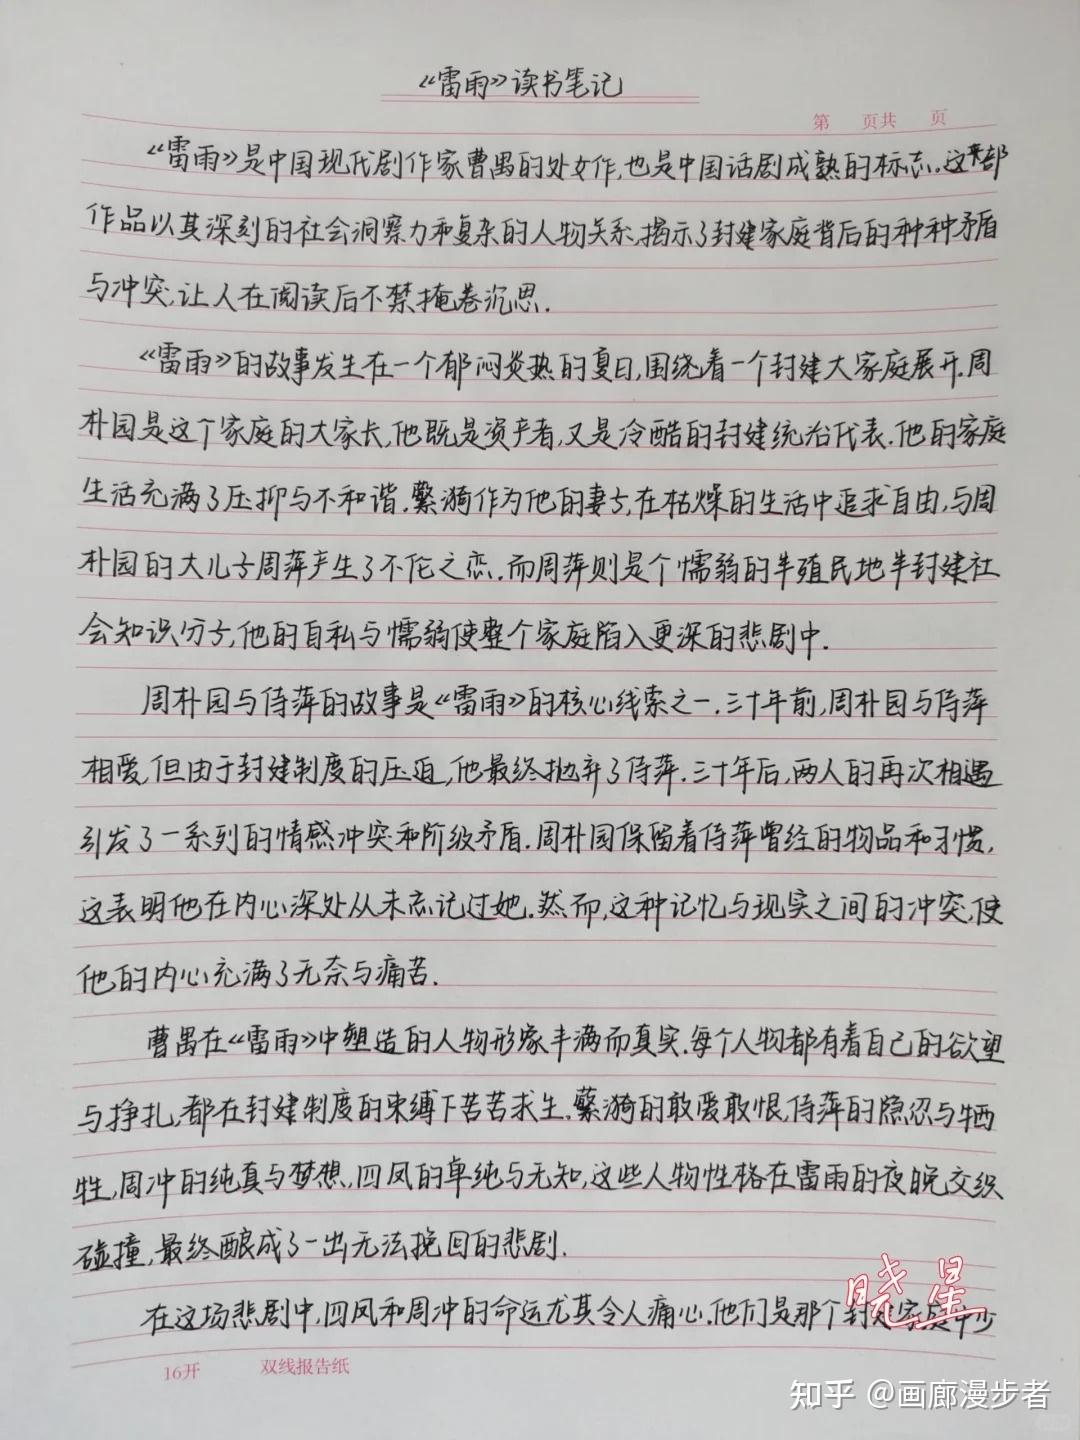 《雷雨》读书笔记
第 页共 页
《雷雨》是中国现代剧作家曹禺的处女作,也是中国话剧成熟的标志.这部
作品以其深刻的社会洞察力和复杂的人物关系,揭示了封建家庭背后的种种矛盾
与冲突,让人在阅读后不禁掩卷沉思.
《雷雨》的故事发生在一个郁闷炎热的夏日,围绕着一个封建大家庭展开.周
朴园是这个家庭的大家长,他既是资产者,又是冷酷的封建统治代表.他的家庭
生活充满了压抑与不和谐.蘩漪作为他的妻子,在枯燥的生活中追求自由,与周
朴园的大儿子周萍产生了不伦之恋.而周萍则是个懦弱的半殖民地半封建社
会知识分子,他的自私与懦弱使整个家庭陷入更深的悲剧中.
周朴园与侍萍的故事是《雷雨》的核心线索之一.三十年前,周朴园与侍萍
相爱,但由于封建制度的压迫,他最终抛弃了侍萍.三十年后,两人的再次相遇
引发了一系列的情感冲突和阶级矛盾.周朴园保留着侍萍曾经的物品和习惯,
这表明他在内心深处从未忘记过她.然而,这种记忆与现实之间的冲突,使
他的内心充满了无奈与痛苦.
曹禺在《雷雨》中塑造的人物形象丰满而真实.每个人物都有着自己的欲望
与挣扎,都在封建制度的束缚下苦苦求生.蘩漪的敢爱敢恨,侍萍的隐忍与牺
牲,周冲的纯真与梦想,四凤的单纯与无知,这些人物性格在雷雨的夜晚交织
碰撞,最终酿成了一出无法挽回的悲剧.
在这场悲剧中,四凤和周冲的命运尤其令人痛心.他们是那个封建家庭中少
晓星
16开 双线报告纸
知乎 @画廊漫步者